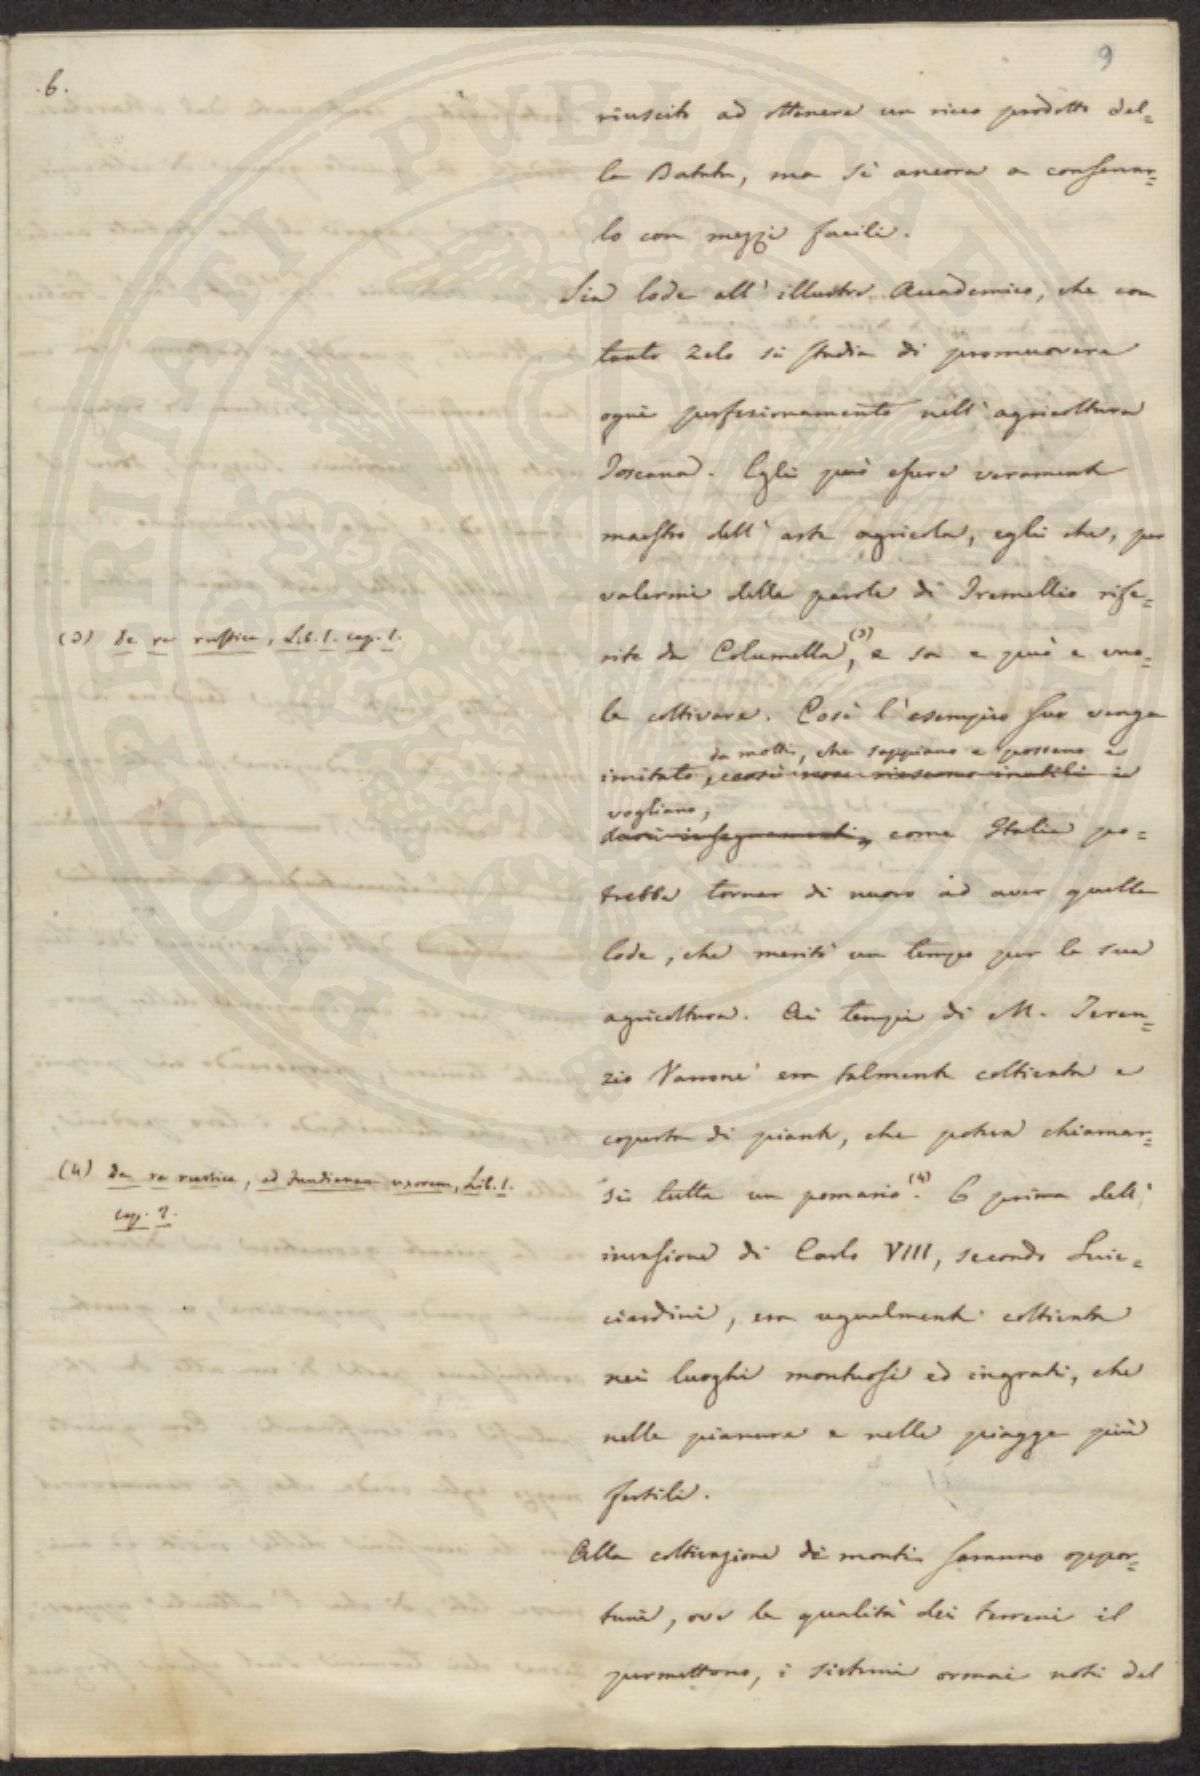 9
.6.
riuscito ad ottenere un ricco prodotto del=
la Batata, ma sì ancora a conservar=
lo con mezzi facili.
Sia lode all' illustre Accademico, che con
tanto zelo si studia di promuovere
ogni perfezionamento nell' agricoltura
Toscana. Egli può essere veramente
maestro dell' arte agricola, egli che, per
valermi delle parole di Tremellio rife=
rite da Columella (3), e sa e può e vuo=
le coltivare. Così l'esempio suo venga
da molti, che sappiano e possano e
imitato, e così non riescano inutili i
vogliano,
suoi insegnamenti, come Italia po=
trebbe tornar di nuovo ad aver quelle
lode, che meritò un tempo per la sua
agricoltura. Ai tempi di M. Teren=
zio Varrone era talmente coltivata e
coperta di piante, che poteva chiamar=
si tutta un pomario (4). E prima dell'
invasione di Carlo VIII, secondo Guic=
ciardini, era ugualmente coltivata
nei luoghi montuosi ed ingrati, che
nelle pianure e nelle piagge più
fertili.
Alla coltivazione di monti saranno oppor=
tuni, ove la qualità dei terreni il
permettono, i sistemi ormai noti del
(3) de re rustica, Lib. 1. cap. 1.
(4) de re rustica, ad Fundaniam uxorem, Lib. 1.
cap. 2.
PUBLICAE